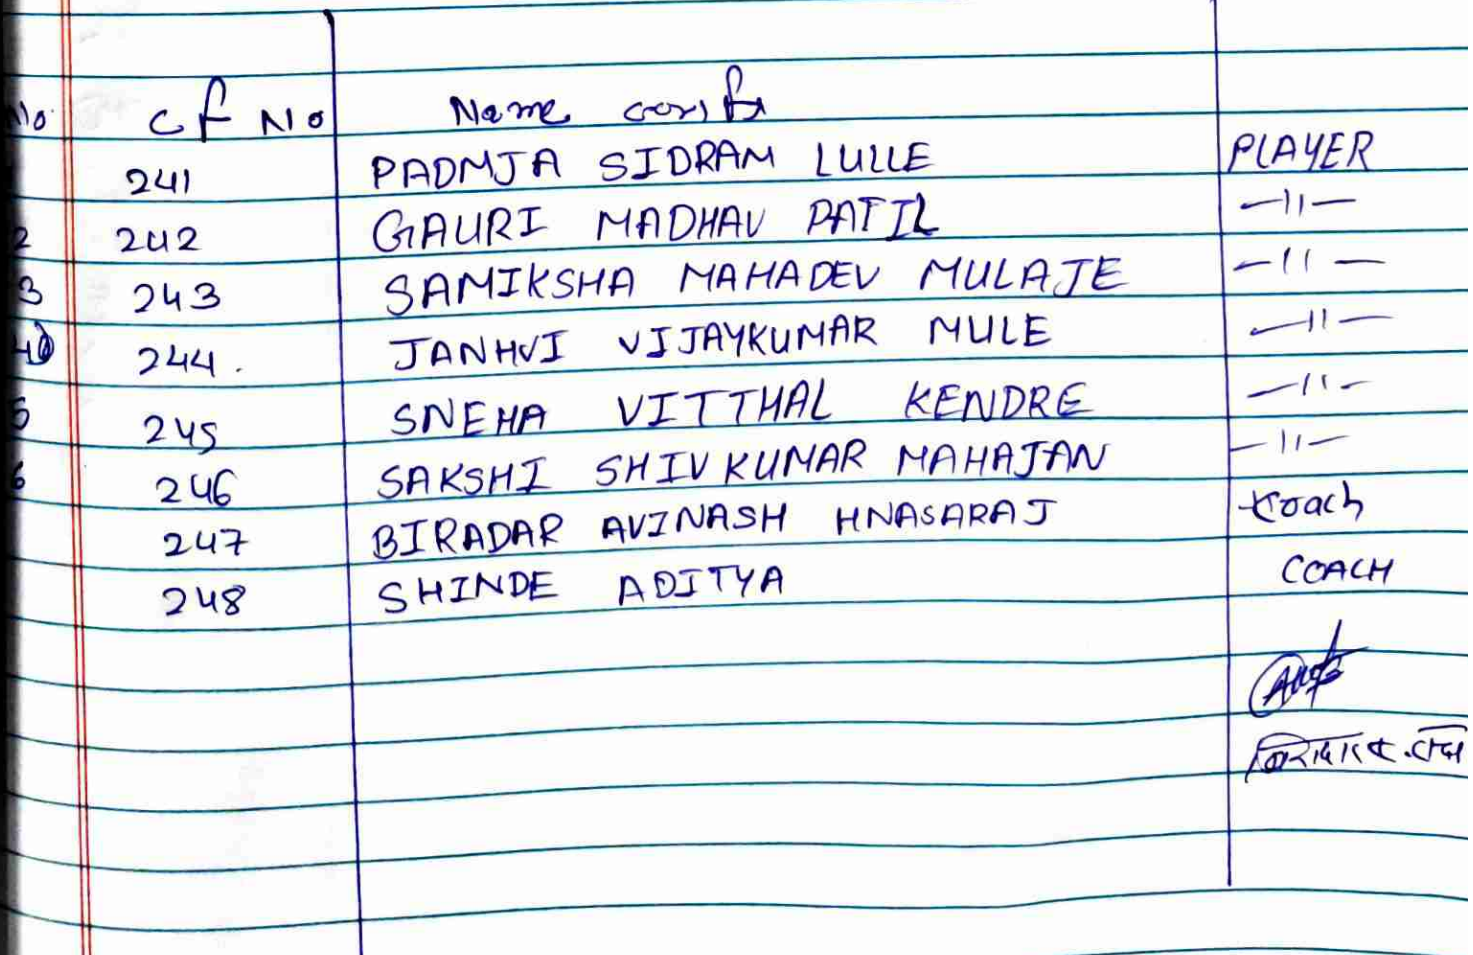 No. CF No Name
241 PADMJA SIDRAM LULLE PLAYER
2 242 GAURI MADHAV PATIL —11—
3 243 SAMIKSHA MAHADEV MULAJE —11—
4 244. JANHVI VIJAYKUMAR MULE —11—
5 245 SNEHA VITTHAL KENDRE —11—
6 246 SAKSHI SHIVKUMAR MAHAJAN —11—
247 BIRADAR AVINASH HNASARAJ Koach
248 SHINDE ADITYA COACH